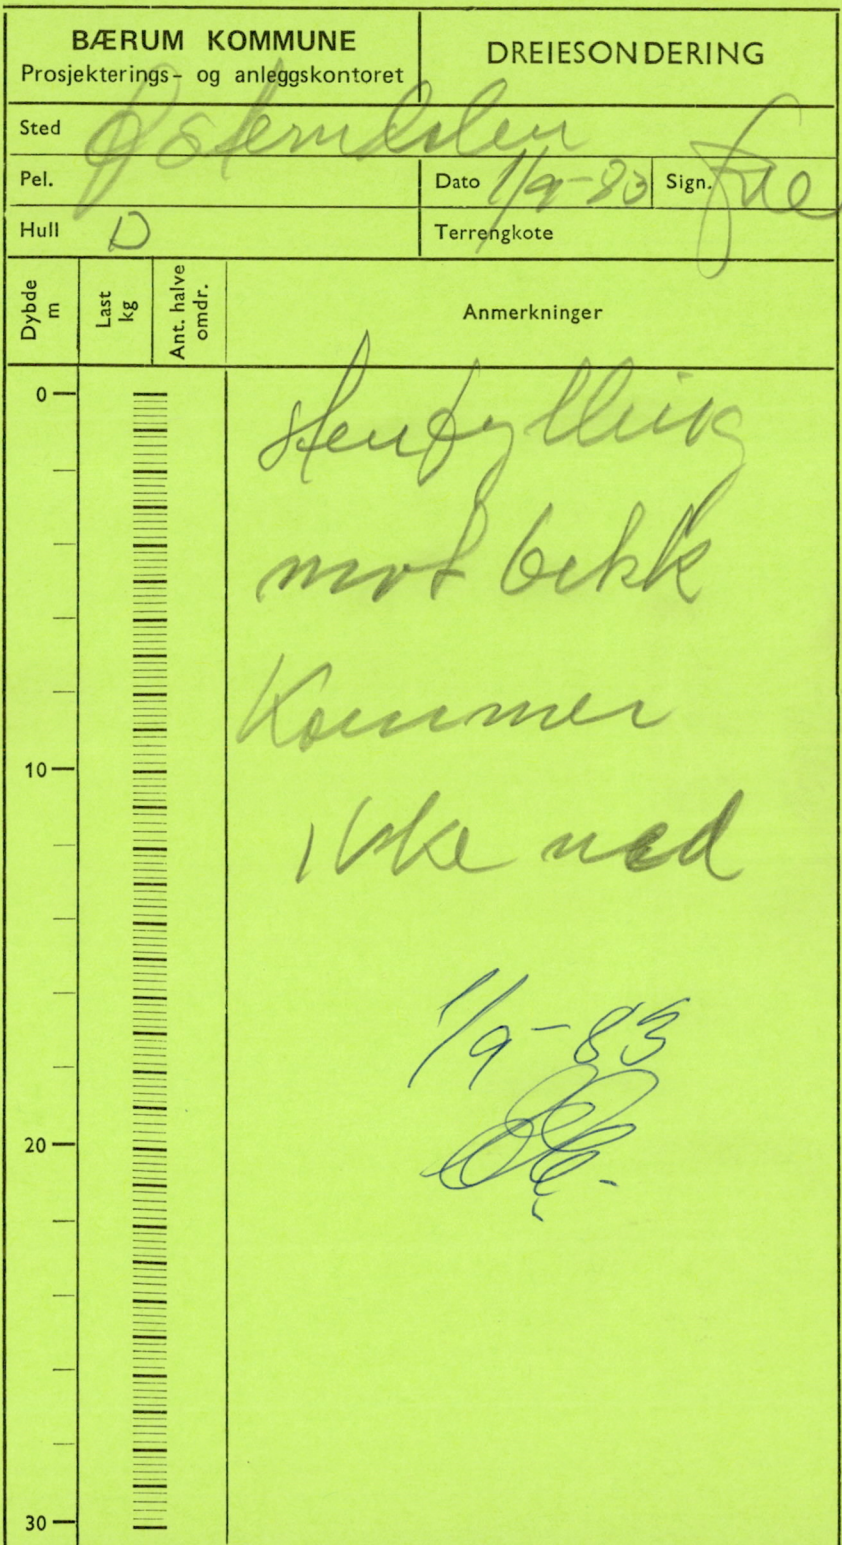 BÆRUM KOMMUNE
Prosjekterings- og anleggskontoret
DREIESONDERING
Sted Østerndalen
Pel.
Dato 1/9-83
Sign.
Hull D
Terrengkote
Dybde m
Last kg
Ant. halve omdr.
Anmerkninger
0
Stenfylling
mot bekk
Kommer
10
ikke ned
1/9-83
20
30